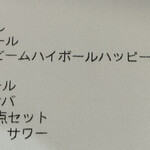 ール
ビームハイボールハッピー
ール
バ
点セット
サワー